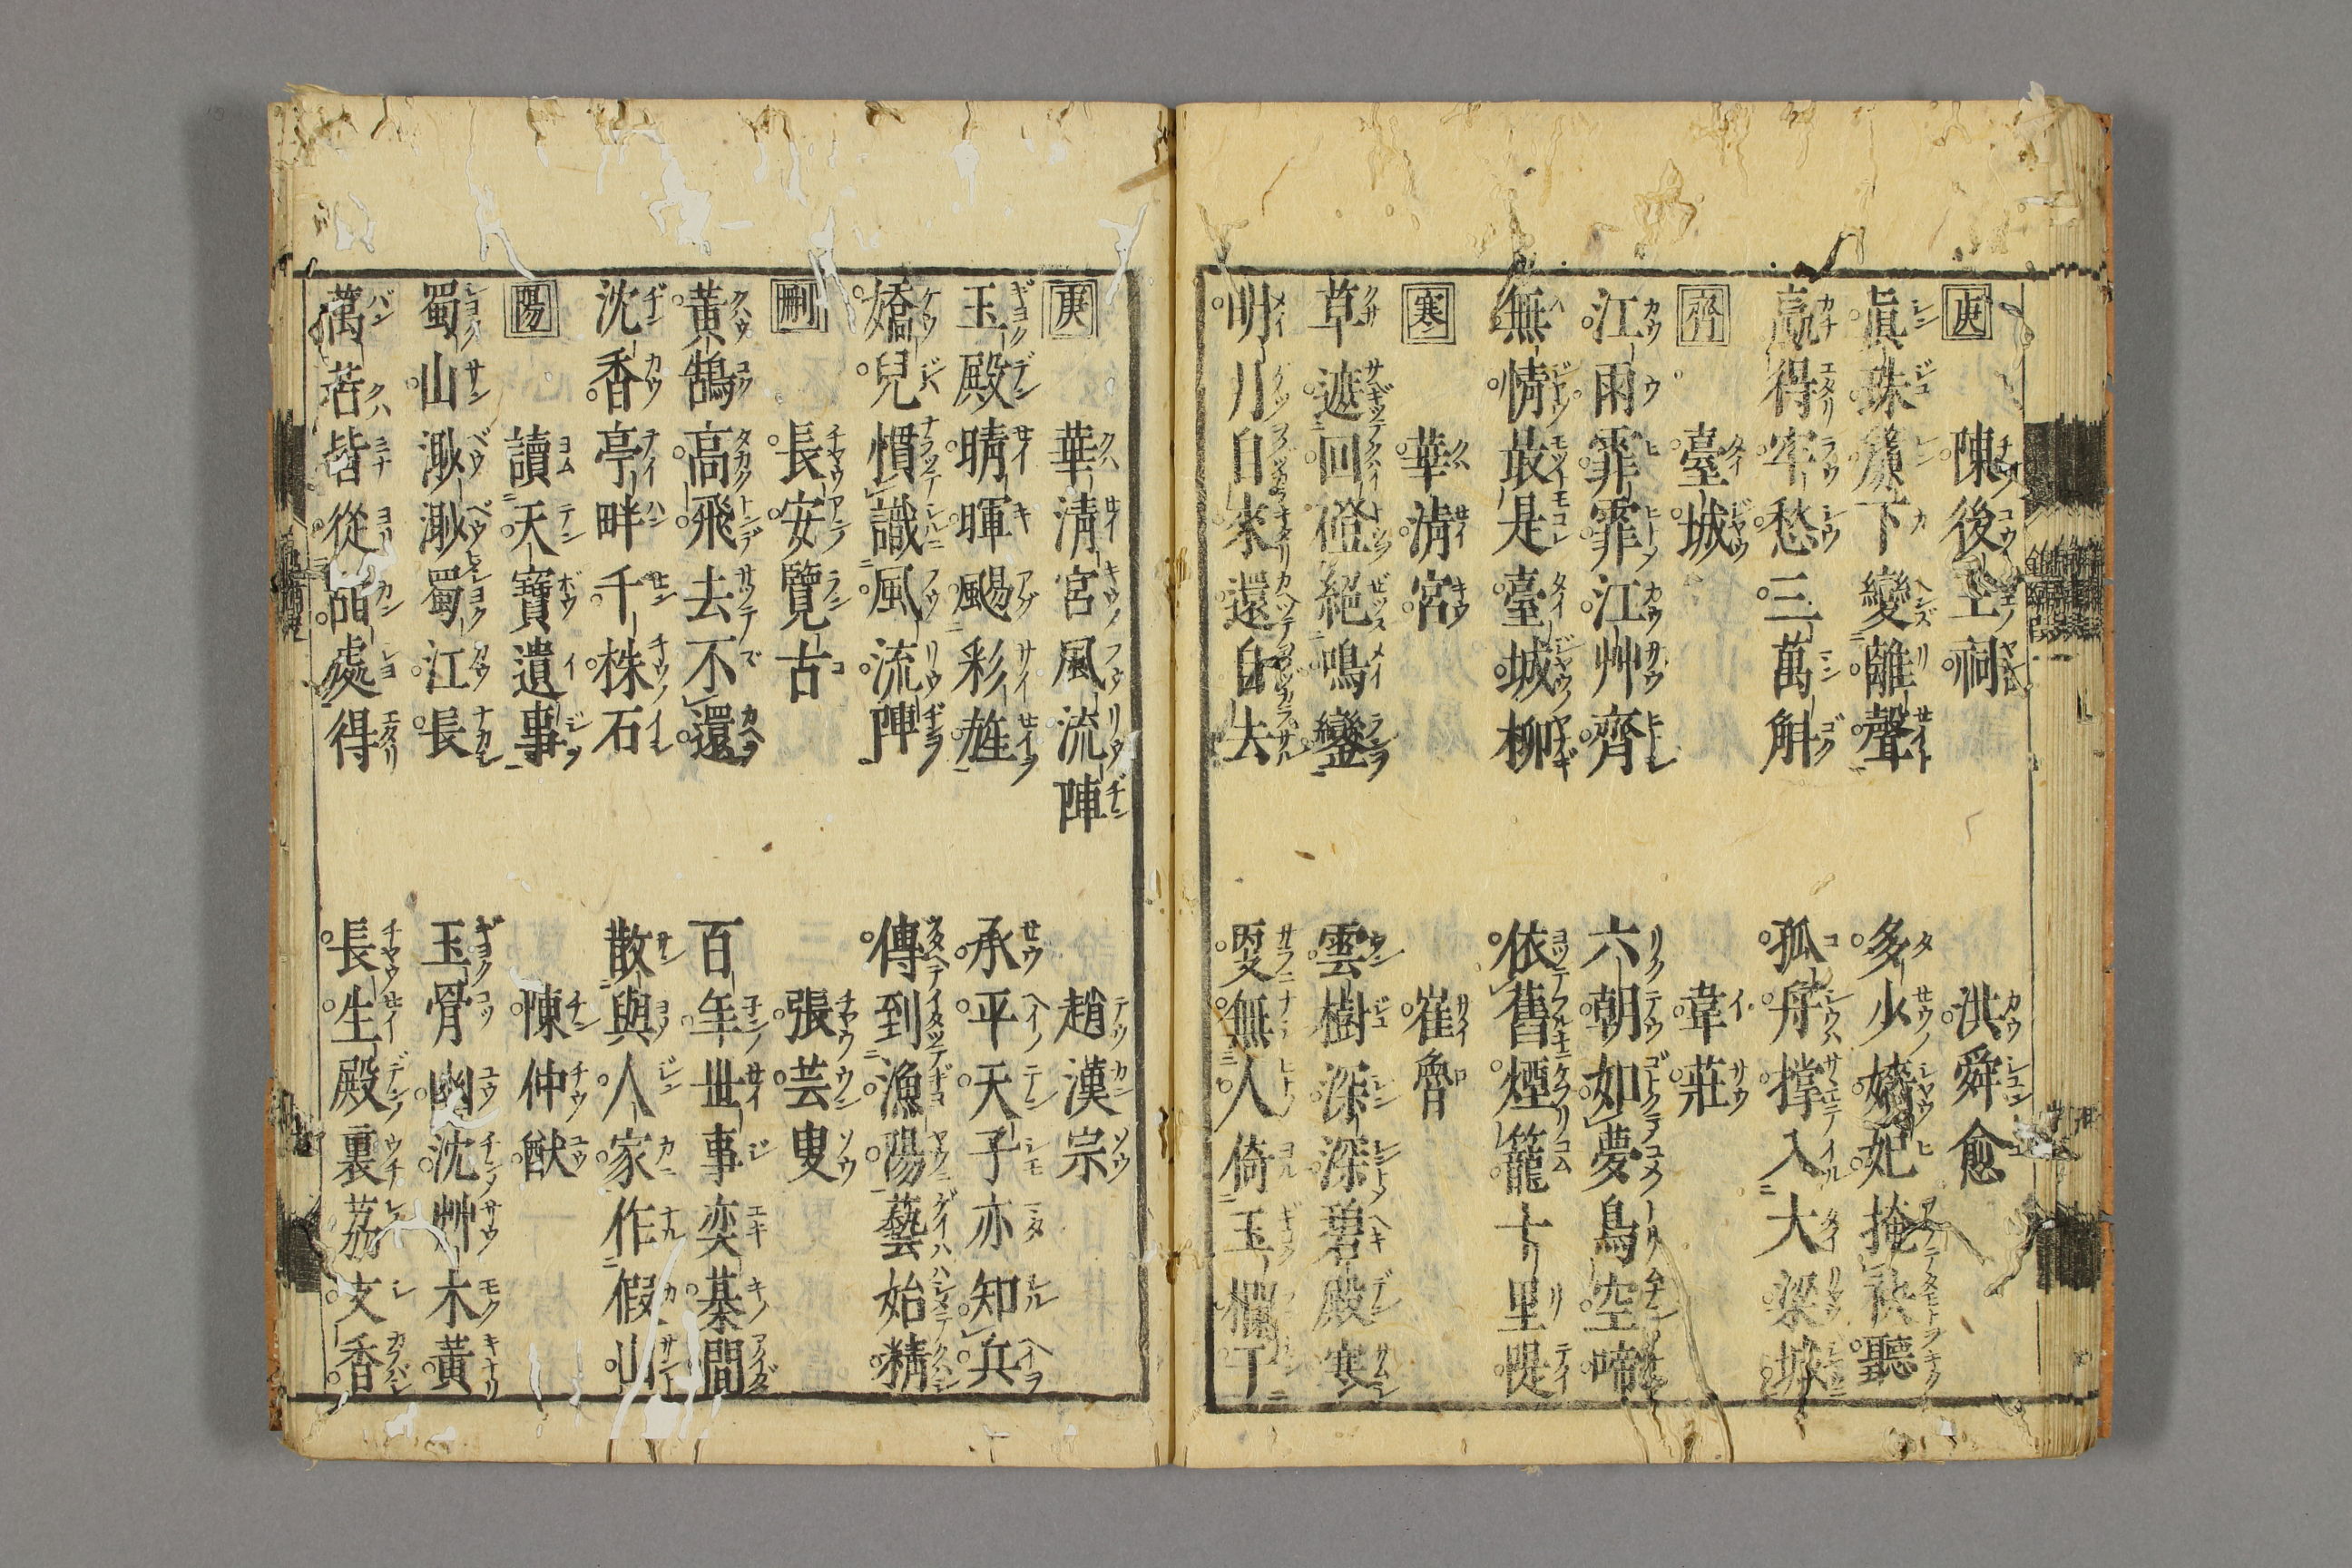 庚 陳後主祠 洪舜愈
眞珠簾下變離聲 多少嬌妃掩袂聽
贏得牢愁三萬斛 孤舟撑入大梁城
齊 臺城 韋莊
江雨霏霏江艸齊 六朝如夢鳥空啼
無情最是臺城柳 依舊煙籠十里堤
寒 華淸宮 崔魯
草遮回磴絕鳴鑾 雲樹深深碧殿寒
明月自來還自去 更無人倚玉欄干
庚 華淸宮風流陣 趙漢宗
玉殿晴暉颺彩旌 承平天子亦知兵
嬌兒慣識風流陣 傳到漁陽藝始精
刪 長安覽古 張芸叟
黃鵠高飛去不還 百年世事奕棊間
沈香亭畔千株石 散與人家作假山
陽 讀天寶遺事 陳仲猷
蜀山渺渺蜀江長 玉骨幽沈艸木黃
萬苦皆從甜處得 長生殿裏荔支香